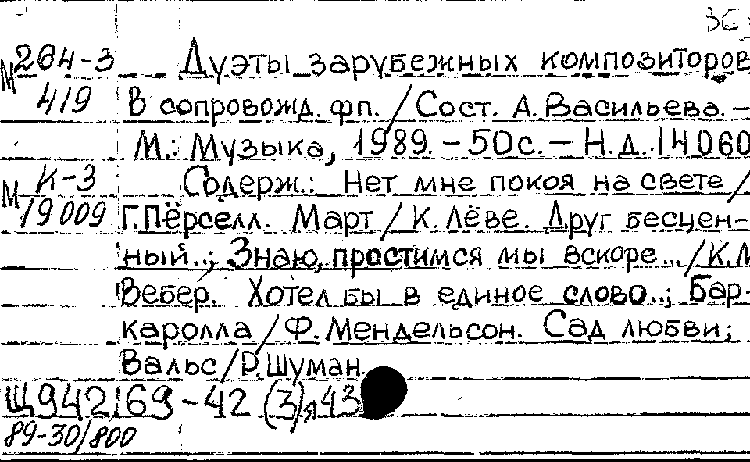 М 264-3 Дуэты зарубежных композиторов
419 в сопровожд. фп. / Сост. А. Васильева. –
М.: Музыка, 1989. – 50с. – Н.д. 14060
М К-3 Содерж.: Нет мне покоя на свете /
19009 Г. Пёрселл. Март / К. Лёве. Друг бесцен-
ный..; Знаю, простимся мы вскоре... / К.М
Вебер. Хотел бы в единое слово..; Бар-
каролла / Ф. Мендельсон. Сад любви;
Вальс / Р. Шуман.
Щ942169-42 (3)я43
89-30/800